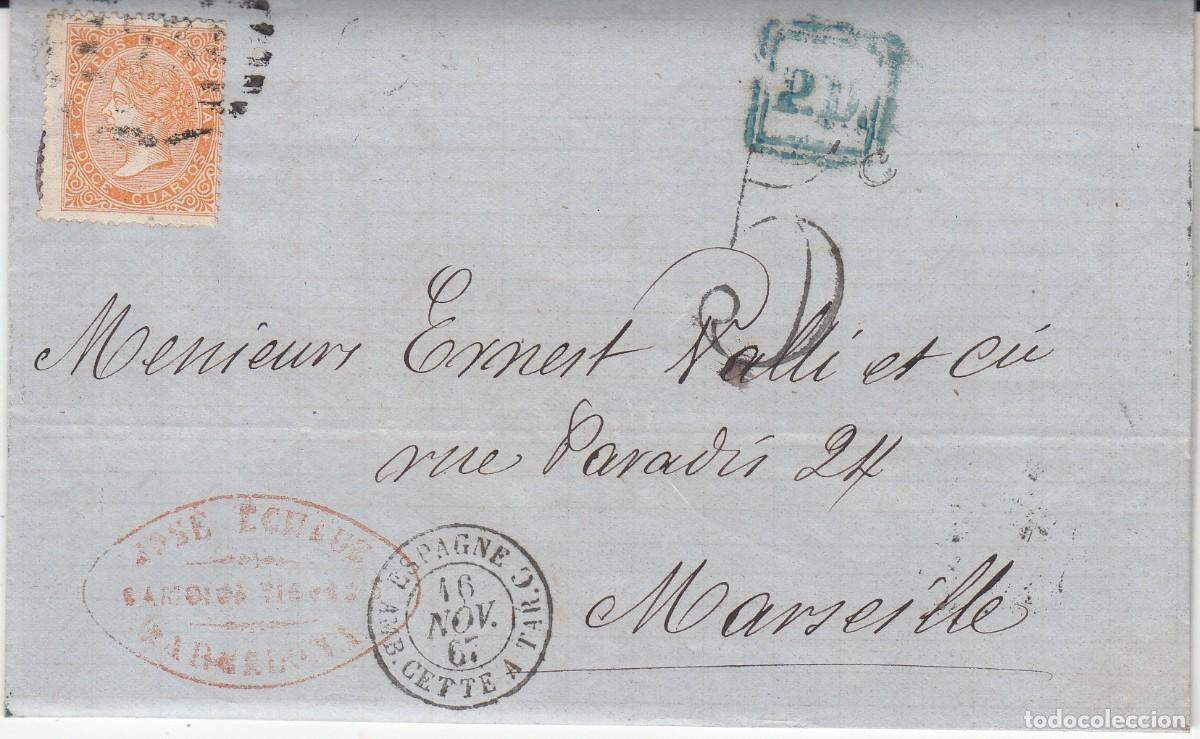 CORREOS DE ESPAÑA
DOCE CUARTOS
P.D.
Messieurs Ernest Valli et Cie
rue Paradis 24
Marseille
JOSÉ ECHAUZ
BARCELONA
ESPAGNE
16
NOV.
67
AMB. CETTE A TAR.C
todocoleccion